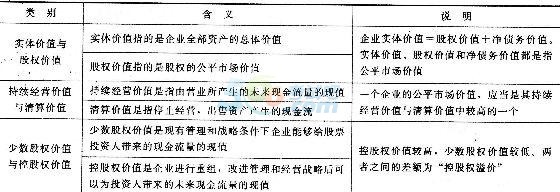 类 别 含 义 说 明
实体价值与
股权价值
实体价值指的是企业全部资产的总体价值
股权价值指的是股权的公平市场价值
企业实体价值＝股权价值＋净债务价值。
实体价值、股权价值和净债务价值都是指
公平市场价值
持续经营价值
与清算价值
持续经营价值是指由营业所产生的未来现金流量的现值
清算价值是指停止经营、出售资产产生的现金流
一个企业的公平市场价值，应当是其持续
经营价值与清算价值中较高的一个
少数股权价值
与控股权价值
少数股权价值是现有管理和战略条件下企业能够给股票
投资人带来的现金流量的现值
控股权价值是企业进行重组，改进管理和经营战略后可
以为投资人带来的未来现金流量的现值
控股权价值较高，少数股权价值较低、两
者之间的差额为“控股权溢价”